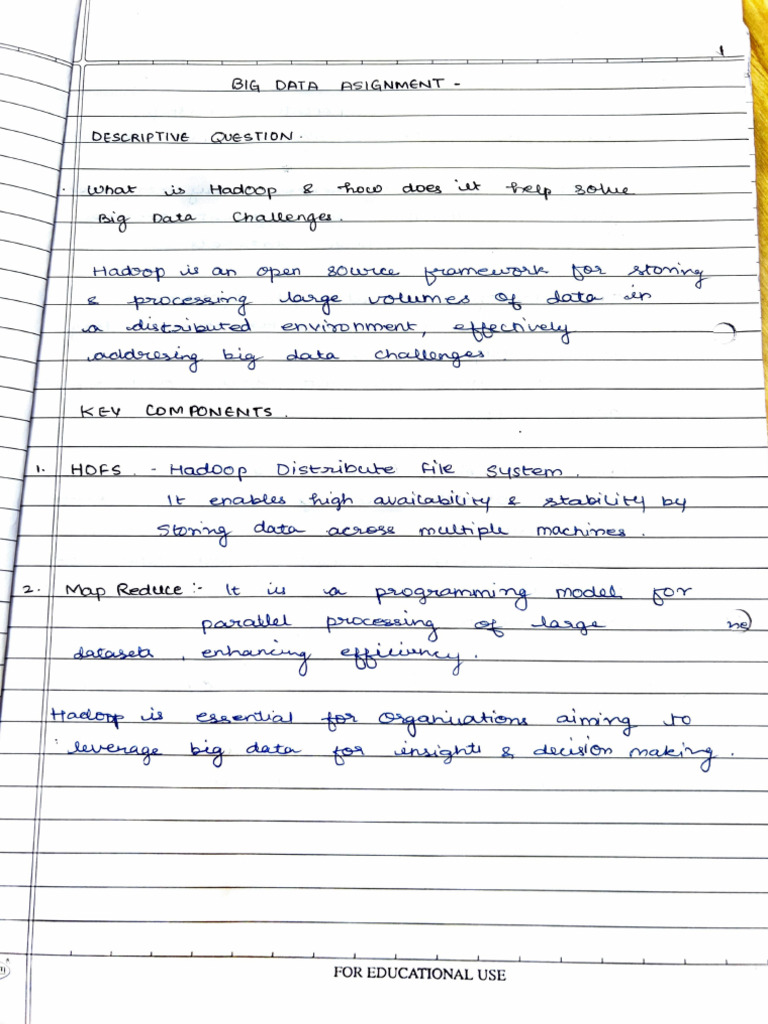 1
BIG DATA ASIGNMENT -
DESCRIPTIVE QUESTION.
What is Hadoop & how does it help solve
Big Data Challenges.
Hadoop is an open source framework for storing
& processing large volumes of data in
a distributed environment, effectively
addresing big data challenges.
KEY COMPONENTS.
1. HDFS. - Hadoop Distribute File System.
It enables high availability & stability by
Storing data across multiple machines.
2. Map Reduce :- It is a programming model for
parallel processing of large
datasets, enhancing efficiency.
Hadoop is essential for Organisations aiming to
leverage big data for insights & decision making.
FOR EDUCATIONAL USE